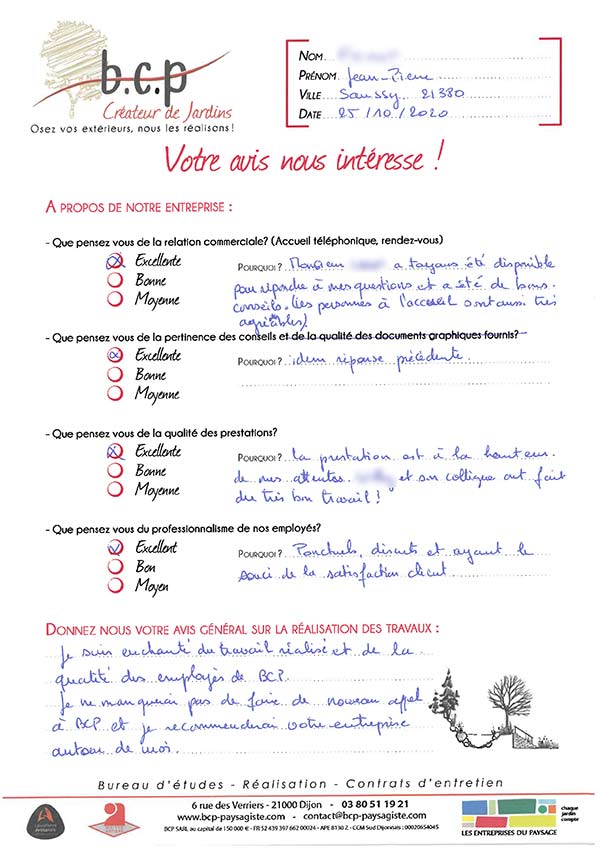 b.c.p
Créateur de Jardins
Osez vos extérieurs, nous les réalisons!
NOM
PRÉNOM Jean-Pierre
VILLE Saussy 21380
DATE 25/10/2020
Votre avis nous intéresse !
A PROPOS DE NOTRE ENTREPRISE :
- Que pensez vous de la relation commerciale? (Accueil téléphonique, rendez-vous)
Excellente
Bonne
Moyenne
POURQUOI ? Monsieur a toujours été disponible
pour répondre à mes questions et a été de bons
conseils. (les personnes à l'accueil sont aussi très
agréables)
- Que pensez vous de la pertinence des conseils et de la qualité des documents graphiques fournis?
Excellente
Bonne
Moyenne
POURQUOI ? idem réponse précédente.
- Que pensez vous de la qualité des prestations?
Excellente
Bonne
Moyenne
POURQUOI ? La prestation est à la hauteur
de mes attentes. et son collègue ont fait
du très bon travail !
- Que pensez vous du professionnalisme de nos employés?
Excellent
Bon
Moyen
POURQUOI ? Ponctuels, discrets et ayant le
souci de la satisfaction client
DONNEZ NOUS VOTRE AVIS GÉNÉRAL SUR LA RÉALISATION DES TRAVAUX :
Je suis enchanté du travail réalisé et de la
qualité des employés de BCP.
Je ne manquerai pas de faire de nouveau appel
à BCP et je recommanderai votre entreprise
autour de moi.
Bureau d'études - Réalisation - Contrats d'entretien
6 rue des Verriers - 21000 Dijon - 03 80 51 19 21
www.bcp-paysagiste.com - contact@bcp-paysagiste.com
BCP SARL au capital de 150 000 € - FR 52 439 397 662 00024 - APE 8130 Z - CCM Sud Dijonnais : 00020654045
LES ENTREPRISES DU PAYSAGE
chaque
jardin
compte